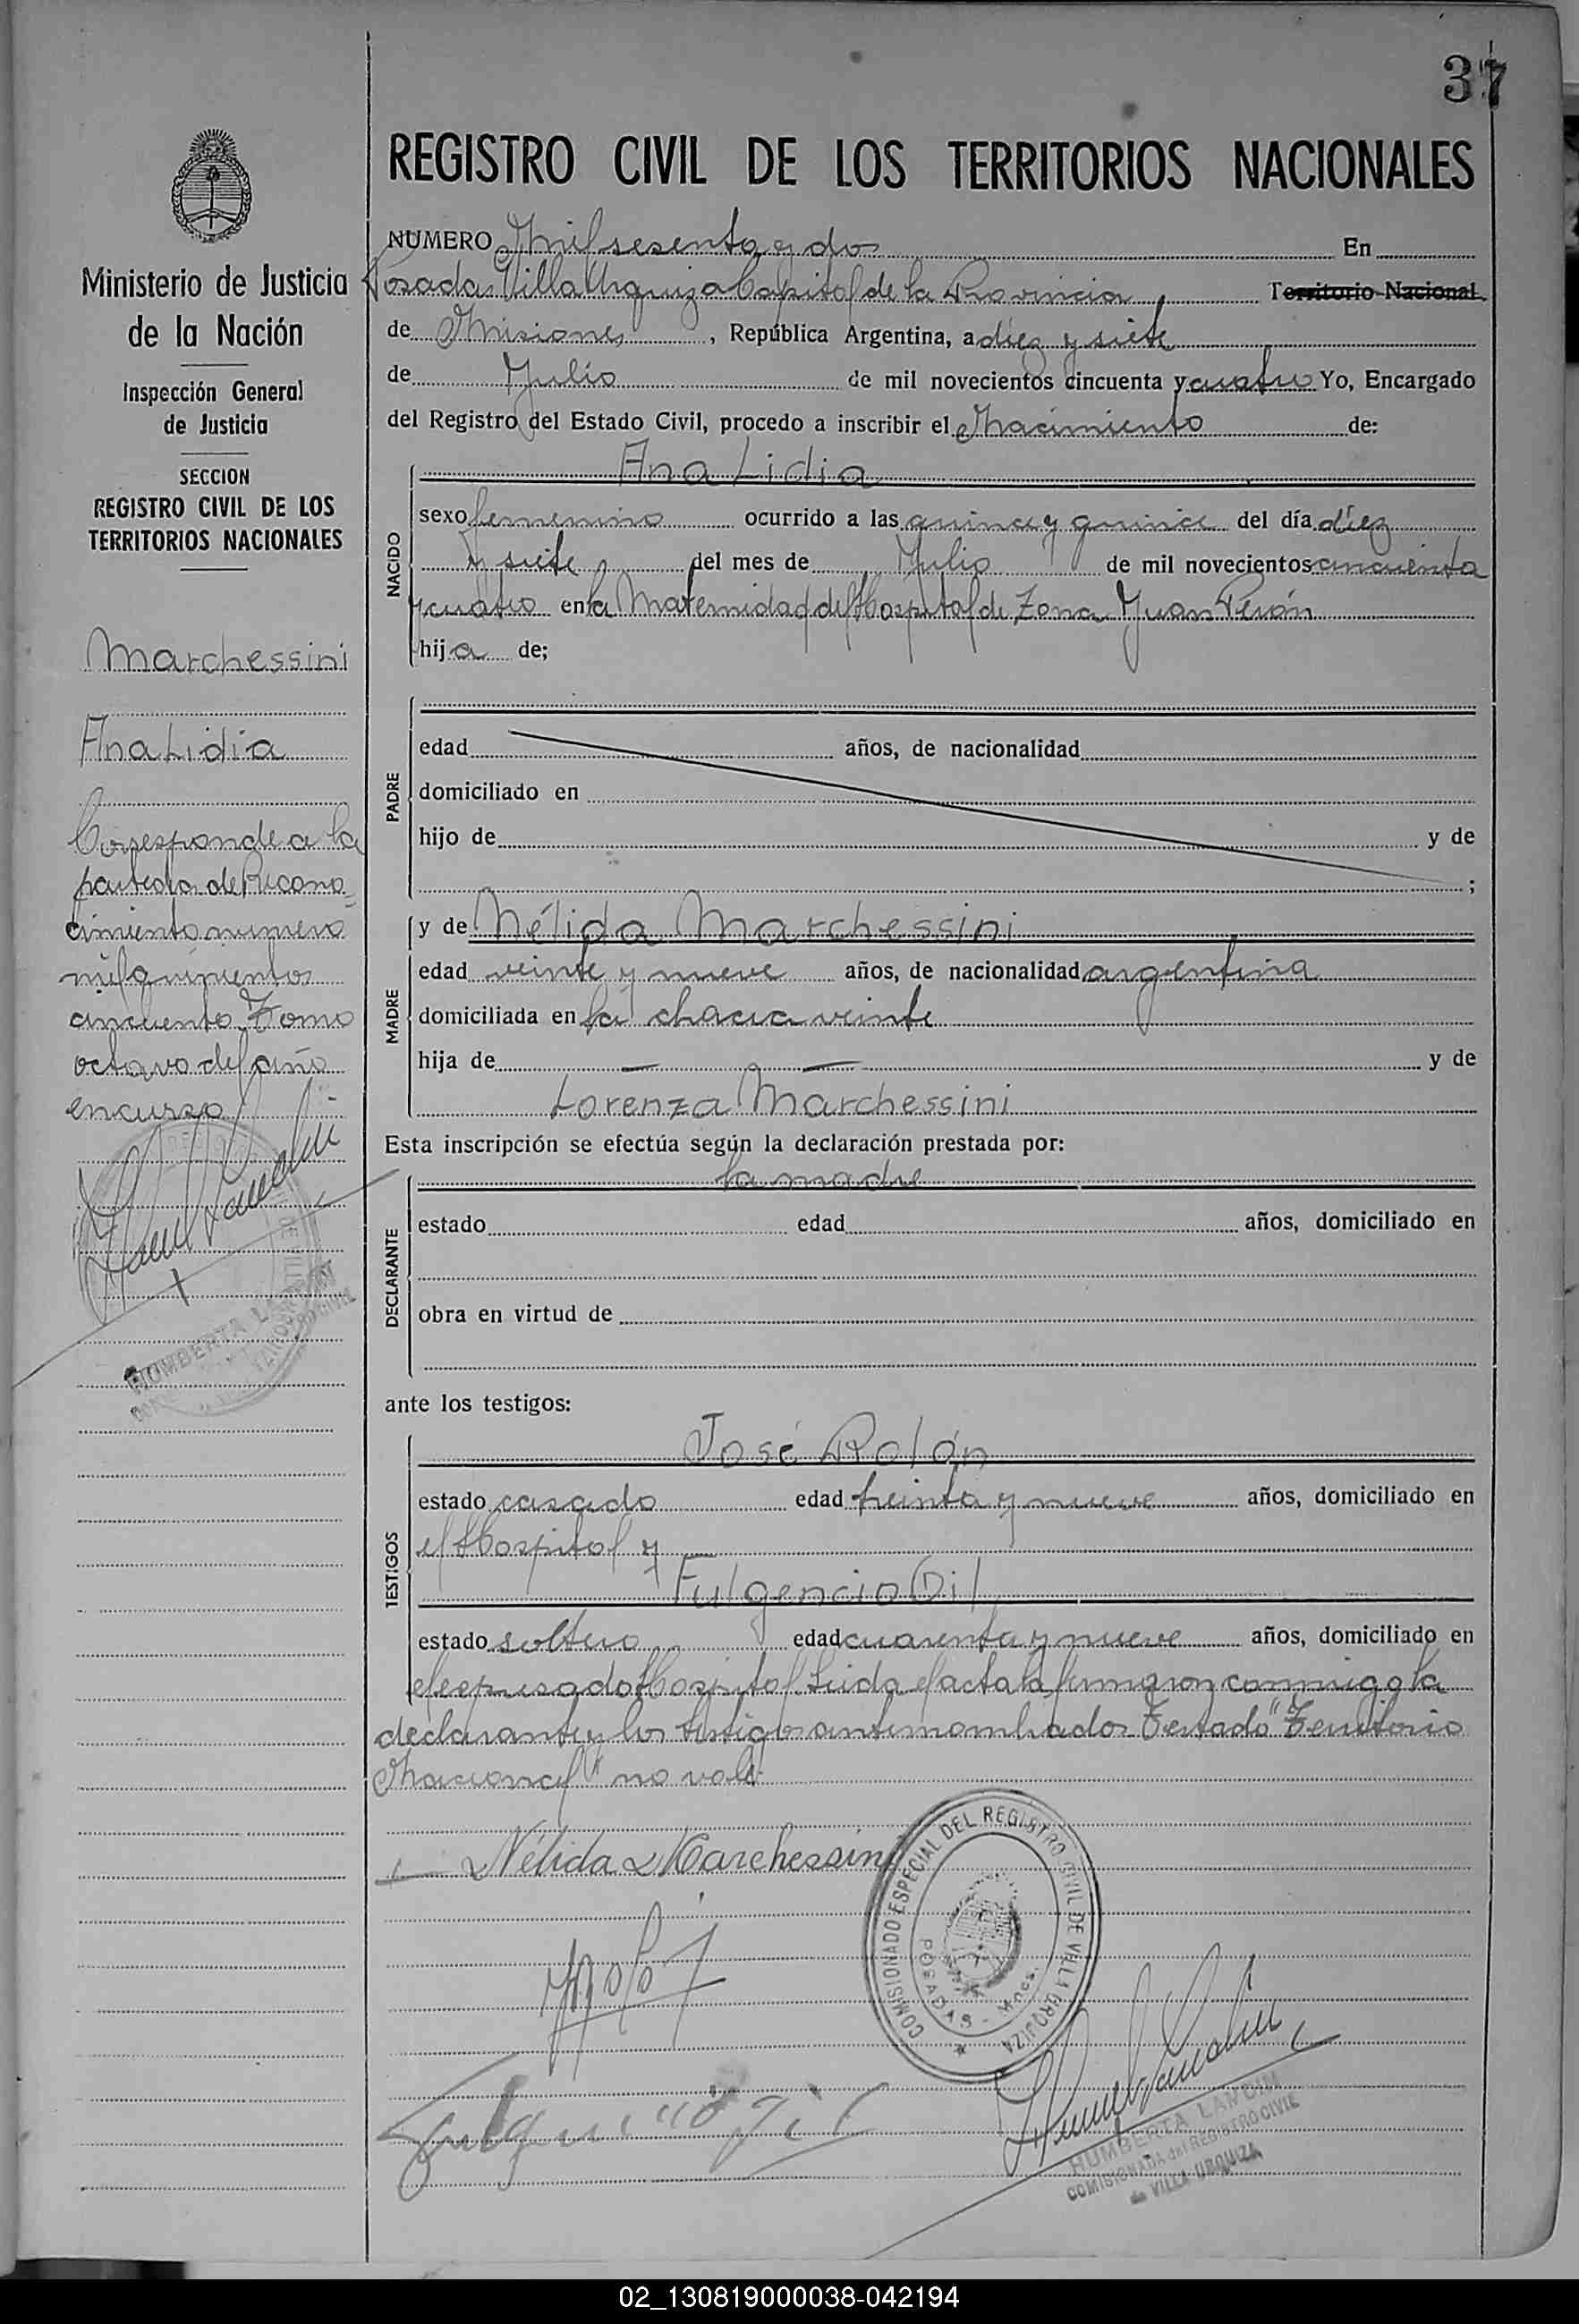 37
REGISTRO CIVIL DE LOS TERRITORIOS NACIONALES
Ministerio de Justicia
de la Nación
Inspección General
de Justicia
SECCION
REGISTRO CIVIL DE LOS
TERRITORIOS NACIONALES
Marchessini
Ana Lidia
Corresponde a la
partida de Recono=
cimiento numero
mil quinientos
cincuenta Tomo
octavo del año
en curso
HUMBERTA LANDINI
NUMERO Mil sesenta y dos En
Posadas Villa Urquiza Capital de la Provincia Territorio Nacional
de Misiones, República Argentina, a diez y siete
de Julio de mil novecientos cincuenta y cuatro Yo, Encargado
del Registro del Estado Civil, procedo a inscribir el Nacimiento de:
NACIDO
Ana Lidia
sexo femenino ocurrido a las quince y quince del día diez
y siete del mes de Julio de mil novecientos cincuenta
y cuatro en la Maternidad del Hospital de Zona Juan Perón
hija de;
PADRE
edad años, de nacionalidad
domiciliado en
hijo de y de
;
MADRE
y de Nélida Marchessini
edad veinte y nueve años, de nacionalidad argentina
domiciliada en la chacra veinte
hija de — — y de
Lorenza Marchessini
Esta inscripción se efectúa según la declaración prestada por:
DECLARANTE
la madre
estado edad años, domiciliado en
obra en virtud de
ante los testigos:
TESTIGOS
José Rolón
estado casado edad treinta y nueve años, domiciliado en
el Hospital y
Fulgencio Gil
estado soltero edad cuarenta y nueve años, domiciliado en
el expresado Hospital. Leida el acta la firmaron conmigo la
declarante y los testigos antenombrados Testado "Territorio
Nacional" no vale
Nélida Marchessini
COMISIONADO ESPECIAL DEL REGISTRO CIVIL DE VILLA URQUIZA
POSADAS - Mnes.
Fulgencio Gil
HUMBERTA LANDINI
COMISIONADA del REGISTRO CIVIL
de VILLA URQUIZA
02_130819000038-042194